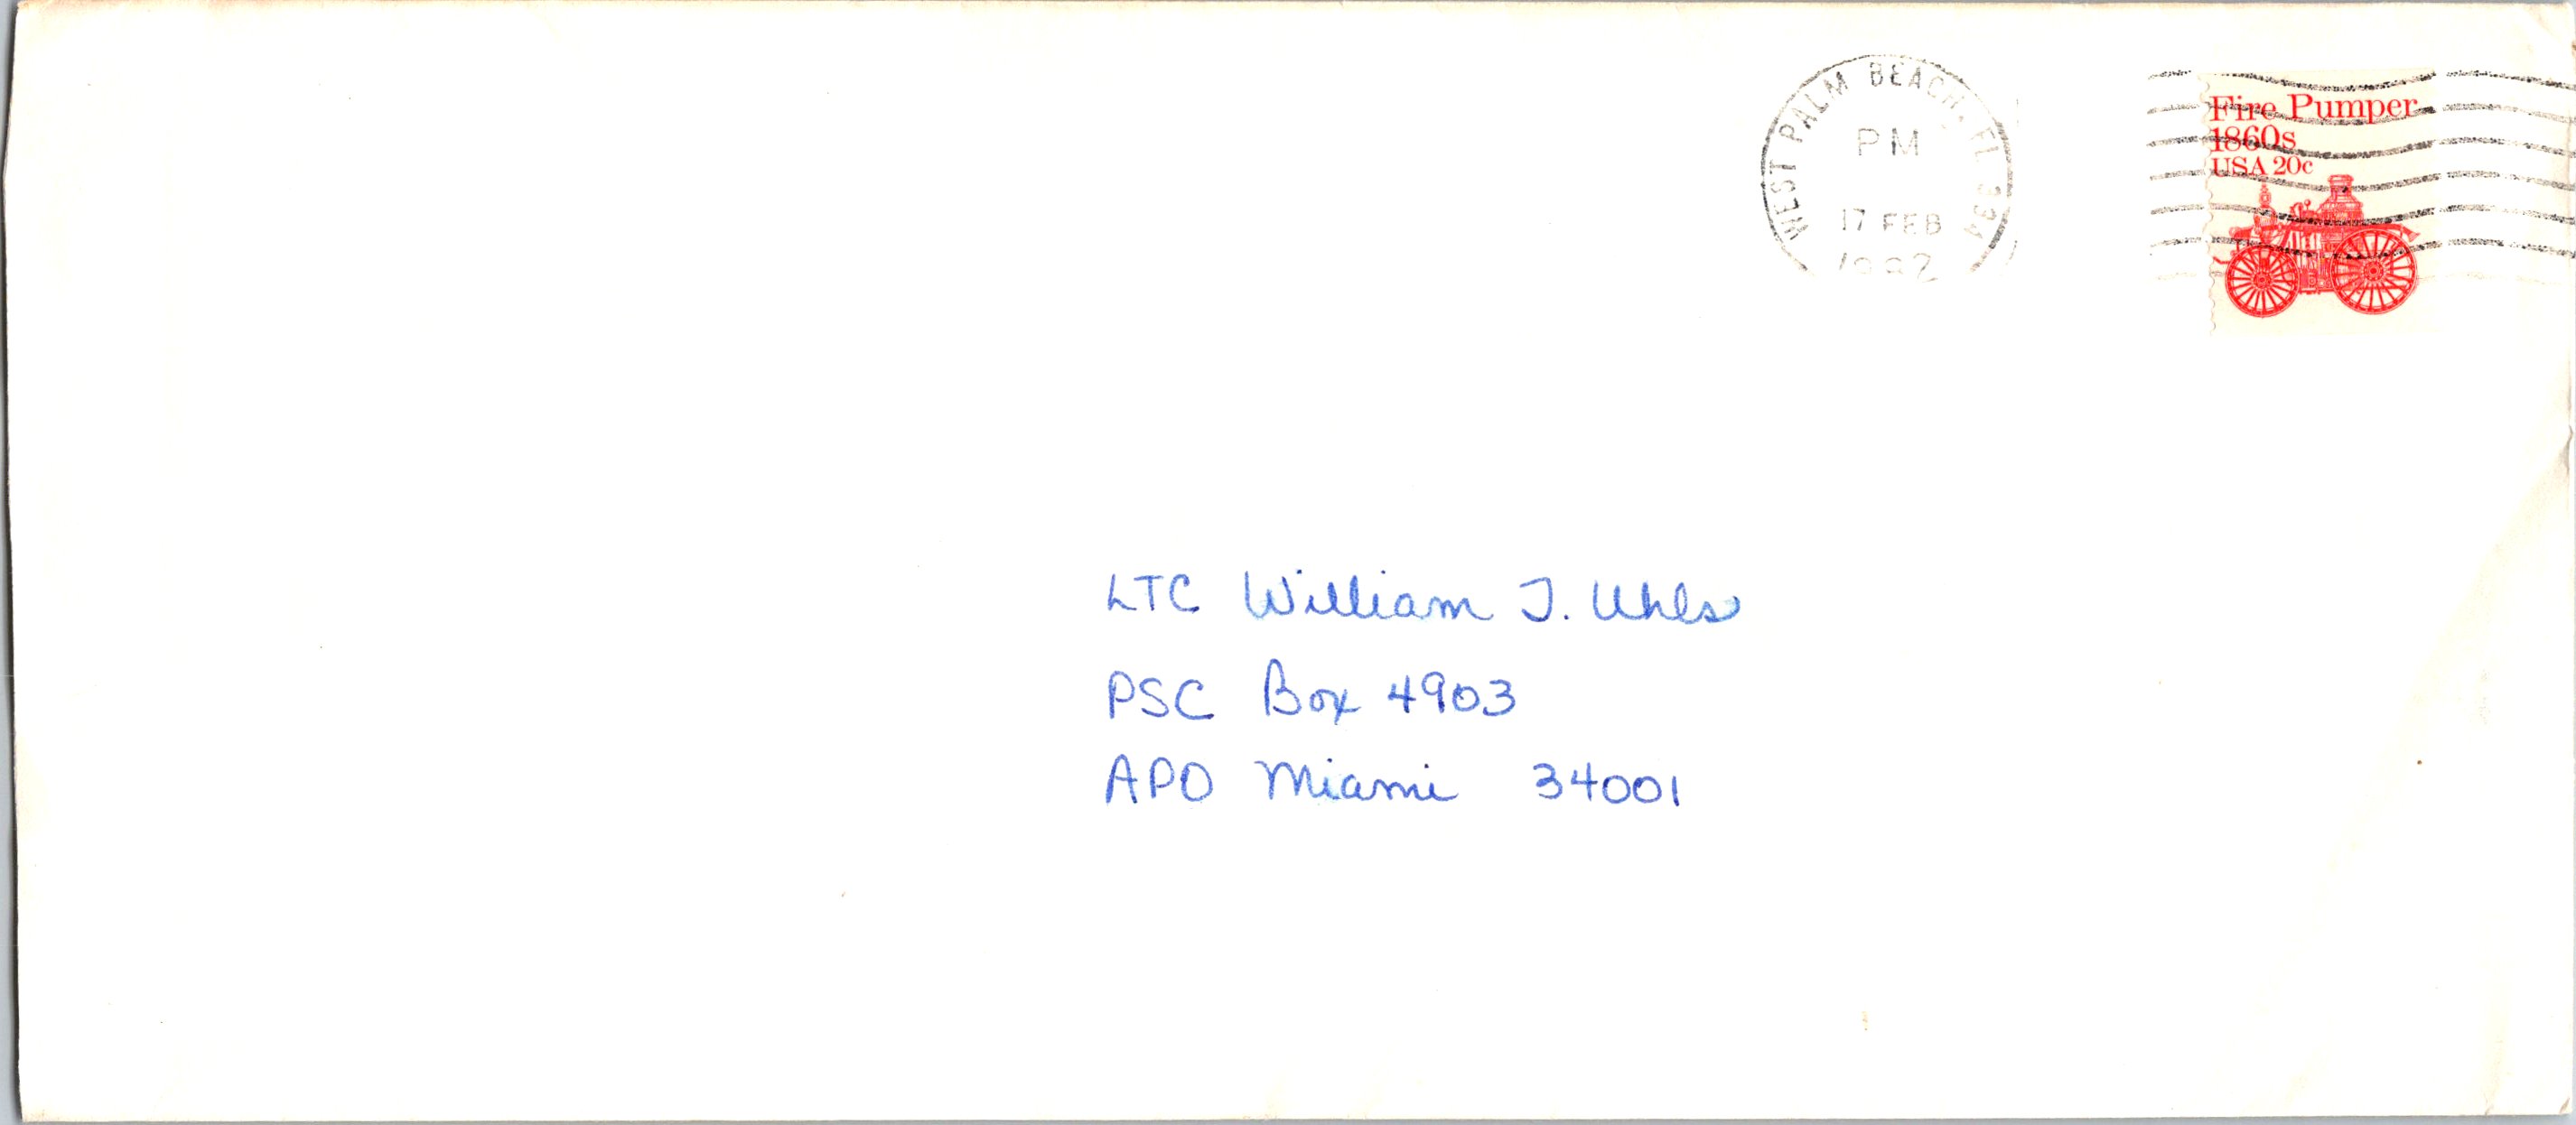 WEST PALM BEACH, FL 334
PM
17 FEB
1982
Fire Pumper
1860s
USA 20c
LTC William J. Uhls
PSC Box 4903
APO Miami 34001